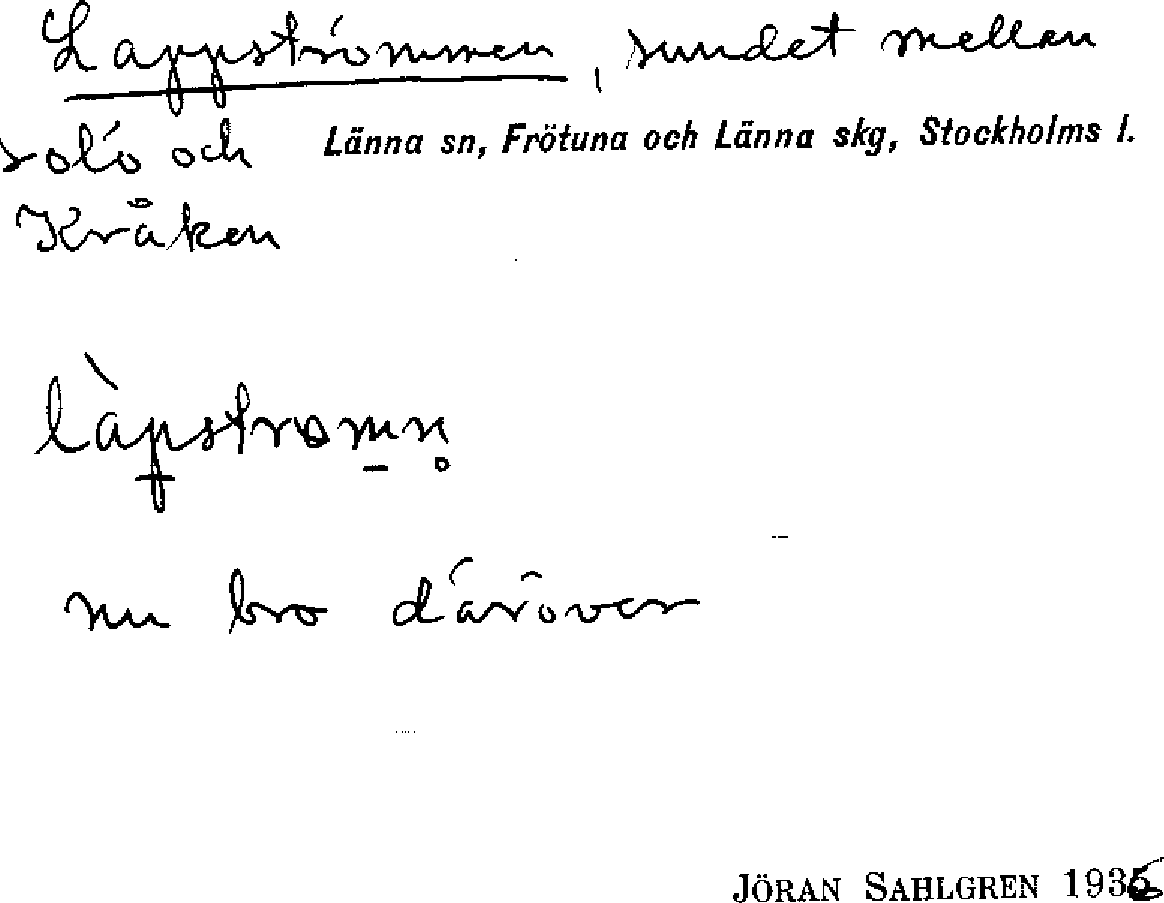 Lappströmmen, sundet mellan
solö och Länna sn, Frötuna och Länna skg, Stockholms l.
Kråken
là̀pstromn̥
nu bro däröver
JÖRAN SAHLGREN 1936